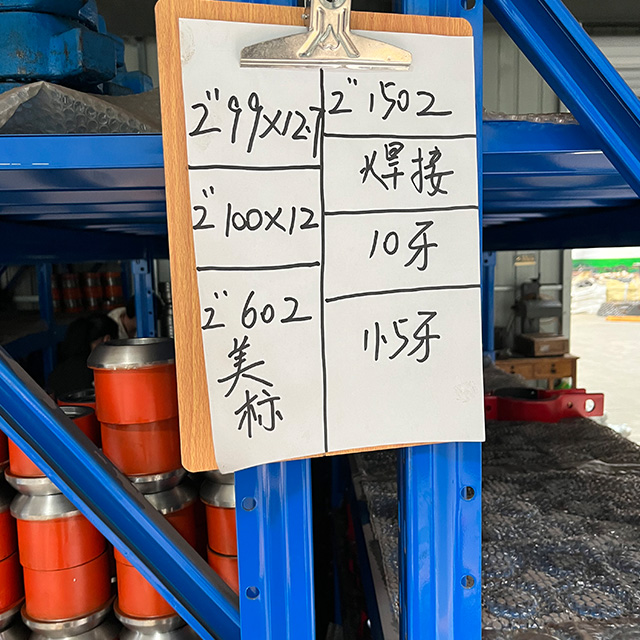 2" 99×12.7
2" 100×12
2" 602
美
标
2" 1502
焊接
10牙
小5牙